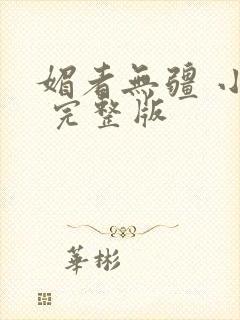 媚者無疆 小
完整版
華彬